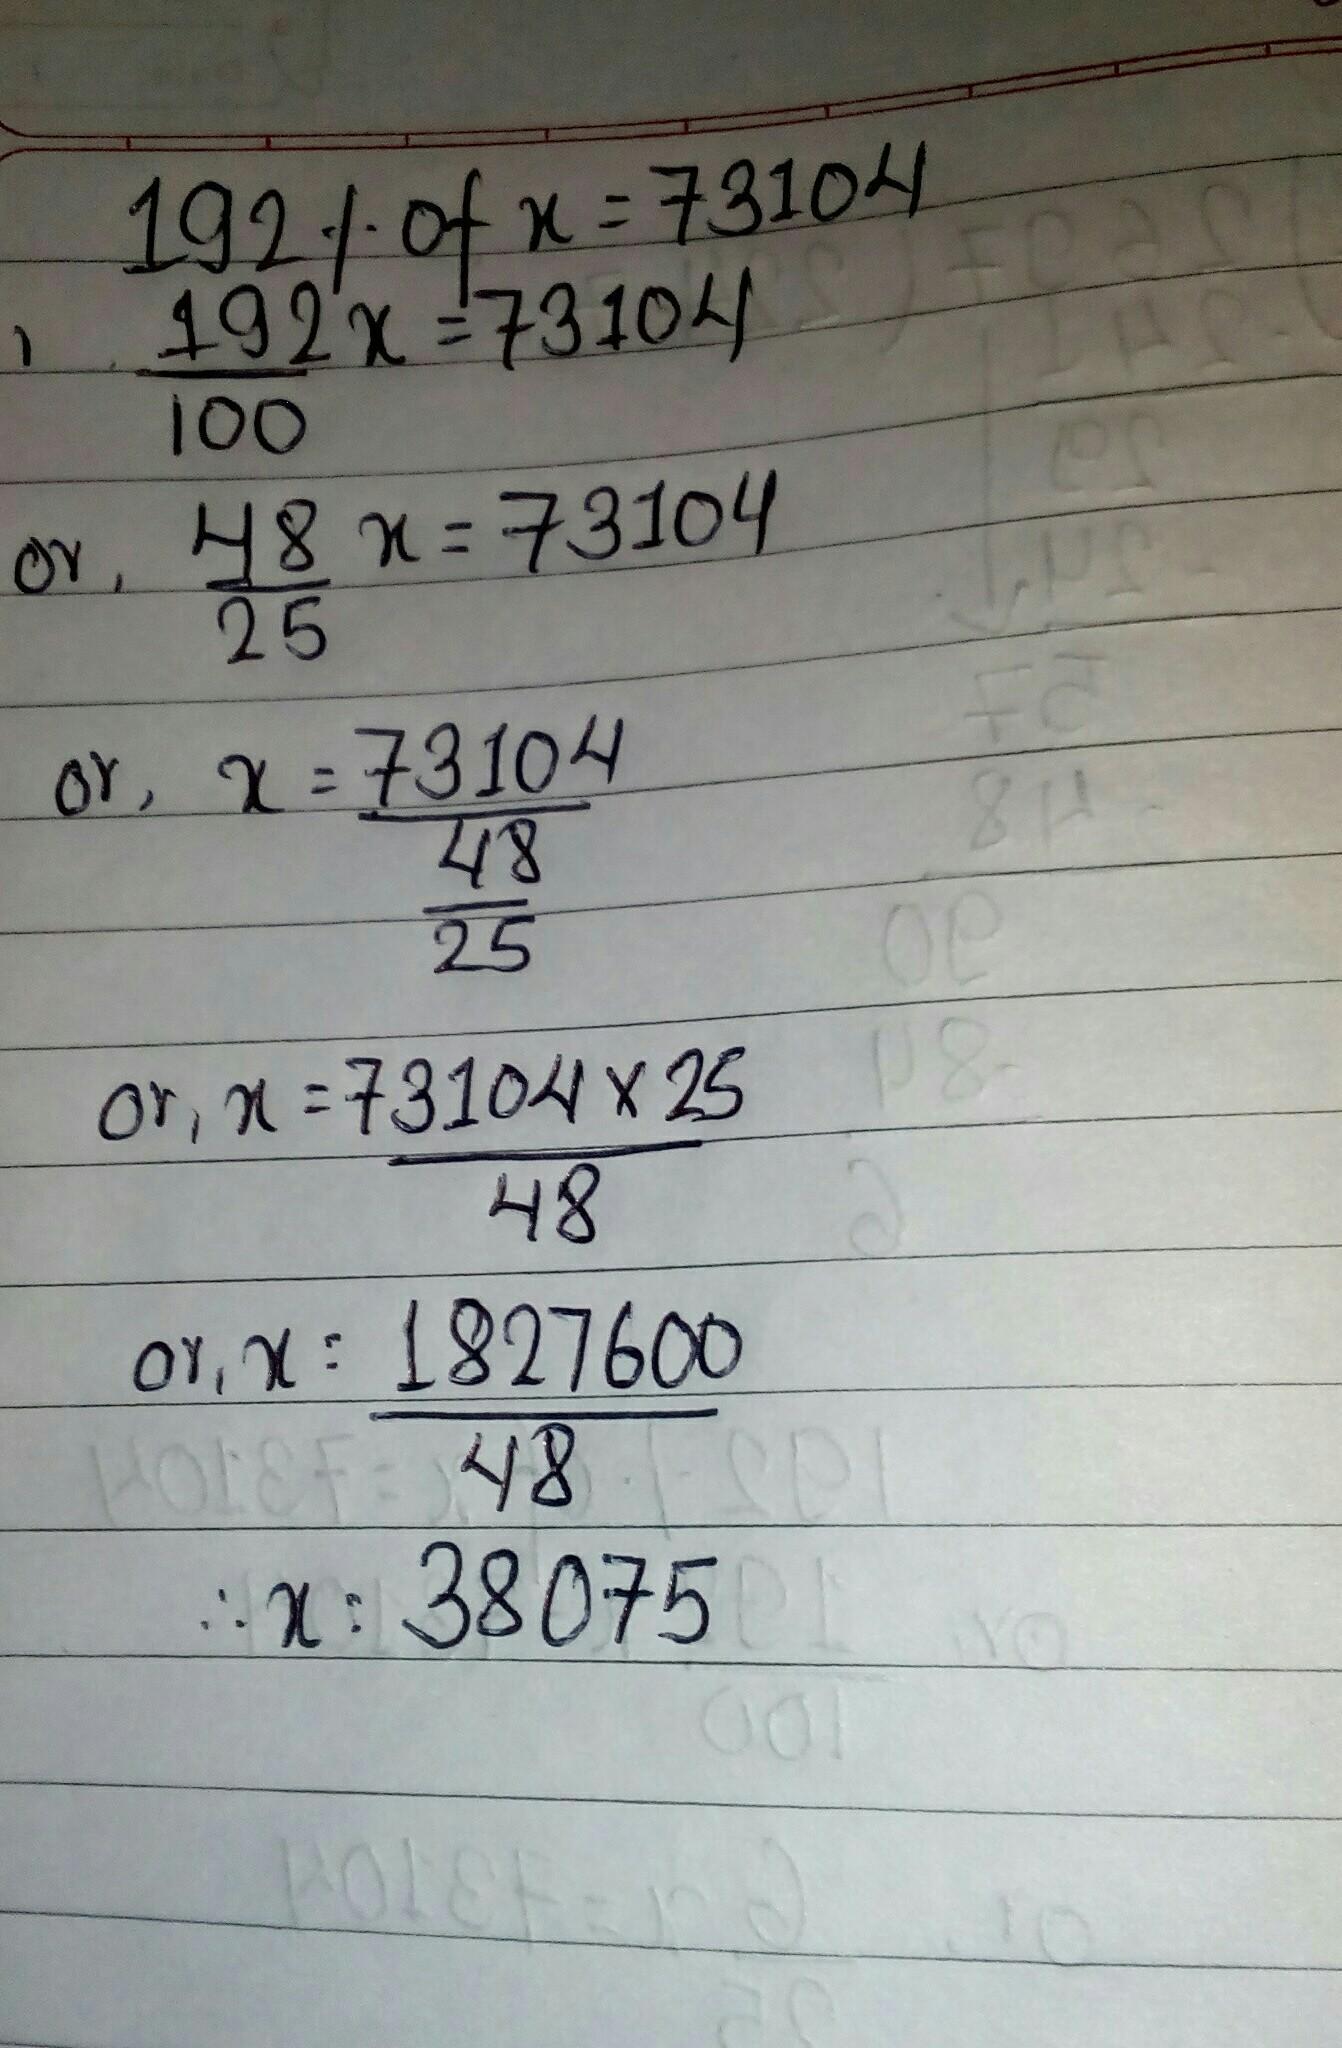 192 % of x = 73104
, 192/100 x = 73104
or, 48/25 x = 73104
or, x = 73104/(48/25)
or, x = 73104 x 25/48
or, x = 1827600/48
∴ x = 38075